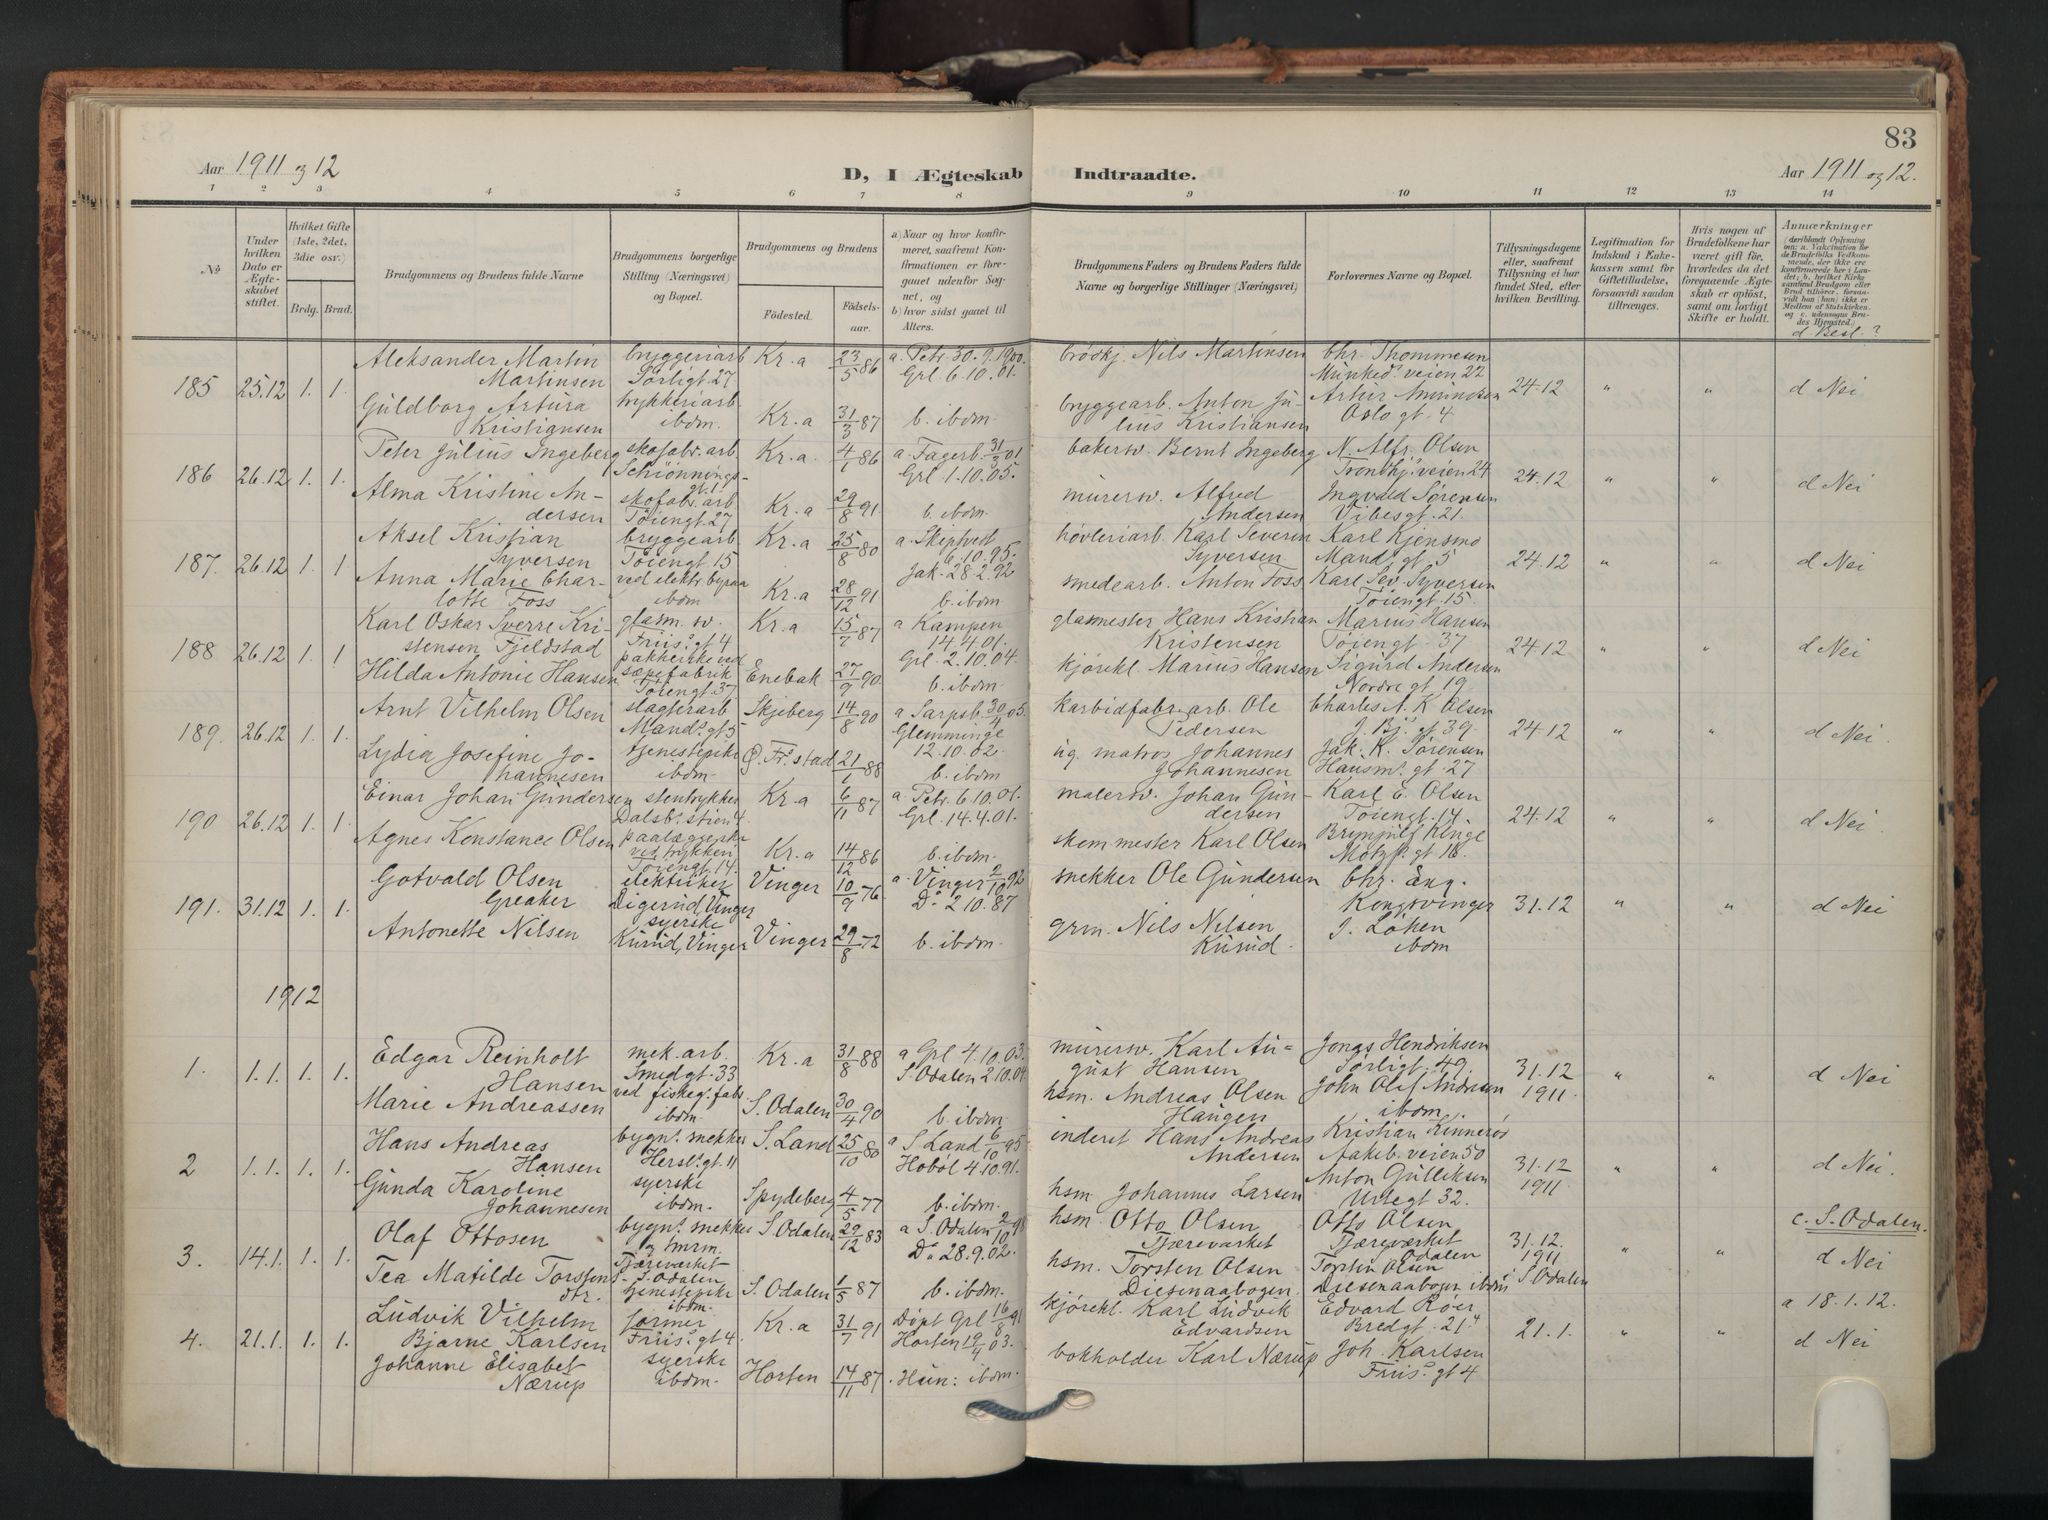 83
Aar 1911 og 12
D, I Ægteskab Indtraadte.
Aar 1911 og 12.
1 2 3 4 5 6 7 8 9 10 11 12 13 14
No
Under hvilken Dato er Ægteskabet stiftet.
Hvilket Gifte (1ste, 2det, 3die osv.)
Brdg. Brud.
Brudgommens og Brudens fulde Navne
Brudgommens borgerlige Stilling (Næringsvei) og Bopæl.
Brudgommens og Brudens
Fødested. Fødselsaar.
a) Naar og hvor konfirmeret, saafremt Konfirmationen er foregaaet udenfor Sognet, og
b) hvor sidst gaaet til Alters.
Brudgommens Faders og Brudens Faders fulde Navne og borgerlige Stillinger (Næringsvei)
Forlovernes Navne og Bopæl.
Tillysningsdagene eller, saafremt Tillysning ei har fundet Sted, efter hvilken Bevilling.
Legitimation for Indskud i Enkekassen samt for Giftetilladelse, forsaavidt saadan tiltrænges.
Hvis nogen af Brudefolkene har været gift før, hvorledes da det foregaaende Ægteskab er opløst, samt om lovligt Skifte er holdt.
Anmærkninger
(deriblandt Oplysning om: a. Vakcination for de Brudefolks Vedkommende, der ikke ere konfirmerede her i Landet; b. hvilket Kirkesamfund Brudgom eller Brud tilhører, forsaavidt han (hun) ikke er Medlem af Statskirken. og c. udensogns Brudes Hjemsted.)
d Besl.?
185 25.12 1. 1. Aleksander Martin Martinsen bryggeriarb Sørligt. 27 Kr.a 23/5 86 a. Petr. 30.9.1900. Grl. 6.10.01. brødkj. Nils Martinsen Chr. Thommesen Munked. veien 22 24.12 " " d Nei
Guldborg Artura Kristiansen trykkeriarb ibdm. Kr.a 31/3 87 b. ibdm. bryggearb. Anton Julius Kristiansen Artur Amundsen Oslo gt. 4
186 26.12 1. 1. Peter Julius Ingeberg skofabr. arb. Schiønningsgt. 1 Kr.a. 4/1 86 a. Fagerb. 31/3 01 Grl 1.10.05. bakersv. Bernt Ingeberg N. Alfr. Olsen Trondhj. veien 24 24.12 " " d Nei
Alma Kristine Andersen skofabr. arb Tøiengt. 27 Kr.a 29/8 91. b. ibdm. murersv. Alfred Andersen Ingvald Sørensen Vibesgt. 21.
187. 26.12 1. 1 Aksel Kristian Syversen bryggearb Tøiengt. 15 Kr.a 25/8 80 a. Skiptvet 6.10.95. Jak. 28.2.92 høvleriarb. Karl Severin Syversen Karl Kjensmo Mands gt. 5 24.12 " " d Nei
Anna Marie Charlotte Foss ved elektr. byraa ibdm Kr.a 28/12 91. b. ibdm smedearb. Anton Foss Karl Sev. Syversen Tøiengt. 15.
188 26.12 1. 1 Karl Oskar Sverre Kristensen Fjeldstad glasm. sv. Friis's gt 4 Kr.a 15/7 87 a Kampen 14.4.01. Grl. 2.10.04. glasmester Hans Kristian Kristensen Marius Hansen Tøiengt. 37 24.12 " " d Nei
Hilda Antonie Hansen pakkerske ved sæpefabrik Tøiengt. 37 Enebak 27/9 90. b. ibdm. kjørekl. Marius Hansen Sigurd Andersen Nordre gt 19
189. 26.12 1. 1. Arnt Vilhelm Olsen slagterarb Mands gt 5 Skjeberg 14/8 90 a. Sarpsb. 30/4 05. Glemminge 12.10.02. Karbidfabr. arb. Ole Pedersen Charles A. K Olsen J. Bj. gt. 39. 24.12 " " d Nei.
Lydia Josefine Johannesen tjenestepike ibdm. Ø. Fr.stad 21/1 88 b. ibdm ug. matros Johannes Johannesen Jak. K. Sørensen Hausm. gt. 27
190 26.12 1. 1. Einar Johan Gundersen stentrykker Dalsb. stien 4. Kr.a 6/11 87 a. Petr. 6.10.01. Grl. 14.4.01. malersv. Johan Gundersen Karl E. Olsen Tøiengt. 14. 24.12 " " d Nei
Agnes Konstance Olsen paalæggerske ved trykken Tøiengt. 14. Kr.a 14/12 86 b. ibdm. skom mester Karl Olsen Brynjulf Klnge Motzf. gt 16.
191. 31.12 1. 1. Gotvald Olsen Greaker elektriker Digerud, Vinger Vinger 10/9 76 a. Vinger 2/10 92 Do 2.10.87 snekker Ole Gundersen Chr. Eng. Kongsvinger 31.12 " " d Nei
Antonette Nilsen syerske Kurud, Vinger Vinger 29/8 72 b. ibdm. grm. Nils Nilsen Kurud. J. Løken ibdm
1912
1. 1.1. 1. 1. Edgar Reinholt Hansen mek. arb. Smedgt. 33 Kr.a 31/8 88 a Grl 4.10.03. S. Odalen 2.10.04 murersv. Karl August Hansen Jonas Hendriksen Sørligt. 49. 31.12 1911 " " d Nei
Marie Andreassen ved fiskeg. fabr ibdm. S. Odalen 30/4 90 b. ibdm. hsm. Andreas Olsen Haugen John Olaf Andresen ibdm.
2 1.1. 1. 1. Hans Andreas Hansen bygn. snekker Hersl. gt. 11 S. Land 25/10 80 a S. Land 6/10 95 Hobøl 4.10.91. inderst Hans Andreas Andersen Kristian Kinnerøs Aakeb. veien 50 31.12 1911 " " d Nei.
Gunda Karoline Johannesen syerske ibdm. Spydeberg 4/5 77 b. ibdm. hsm Johannes Larsen Anton Gulliksen Urtegt 32.
3. 14.1. 1. 1. Olaf Ottosen bygn. snekker og tmrm. Tjæreverket S. Odalen S. Odalen 29/12 83 a S. Odalen 2/10 98 Do 28.9.02. hsm. Otto Olsen Tjæreverket Otto Olsen Tjæreverket S. Odalen 31.12. 1911 S. Odalen " " c. S. Odalen. d Nei
Tea Matilde Torstensdtr. tjenestepike ibdm. S. Odalen 1/5 87 b. ibdm. hsm. Torsten Olsen Diesenaabogen Torstin Olsen Diesenaabogen ibdm
4. 21.1. 1. 1. Ludvik Vilhelm Bjarne Karlsen former Friis's gt 4. Kr.a 31/7 91 Døpt Grl 16/8 91 Horten 19/4 03. kjørekl. Karl Ludvik Edvardsen Edvard Roer Bredgt. 21. 21.1. " " a 18.1.12. d Nei
Johanne Elisabet Nærup syerske ibdm. Horten 14/11 87 Hun: ibdm. bokholder Karl Nærup Joh. Karlsen Friis's gt 4